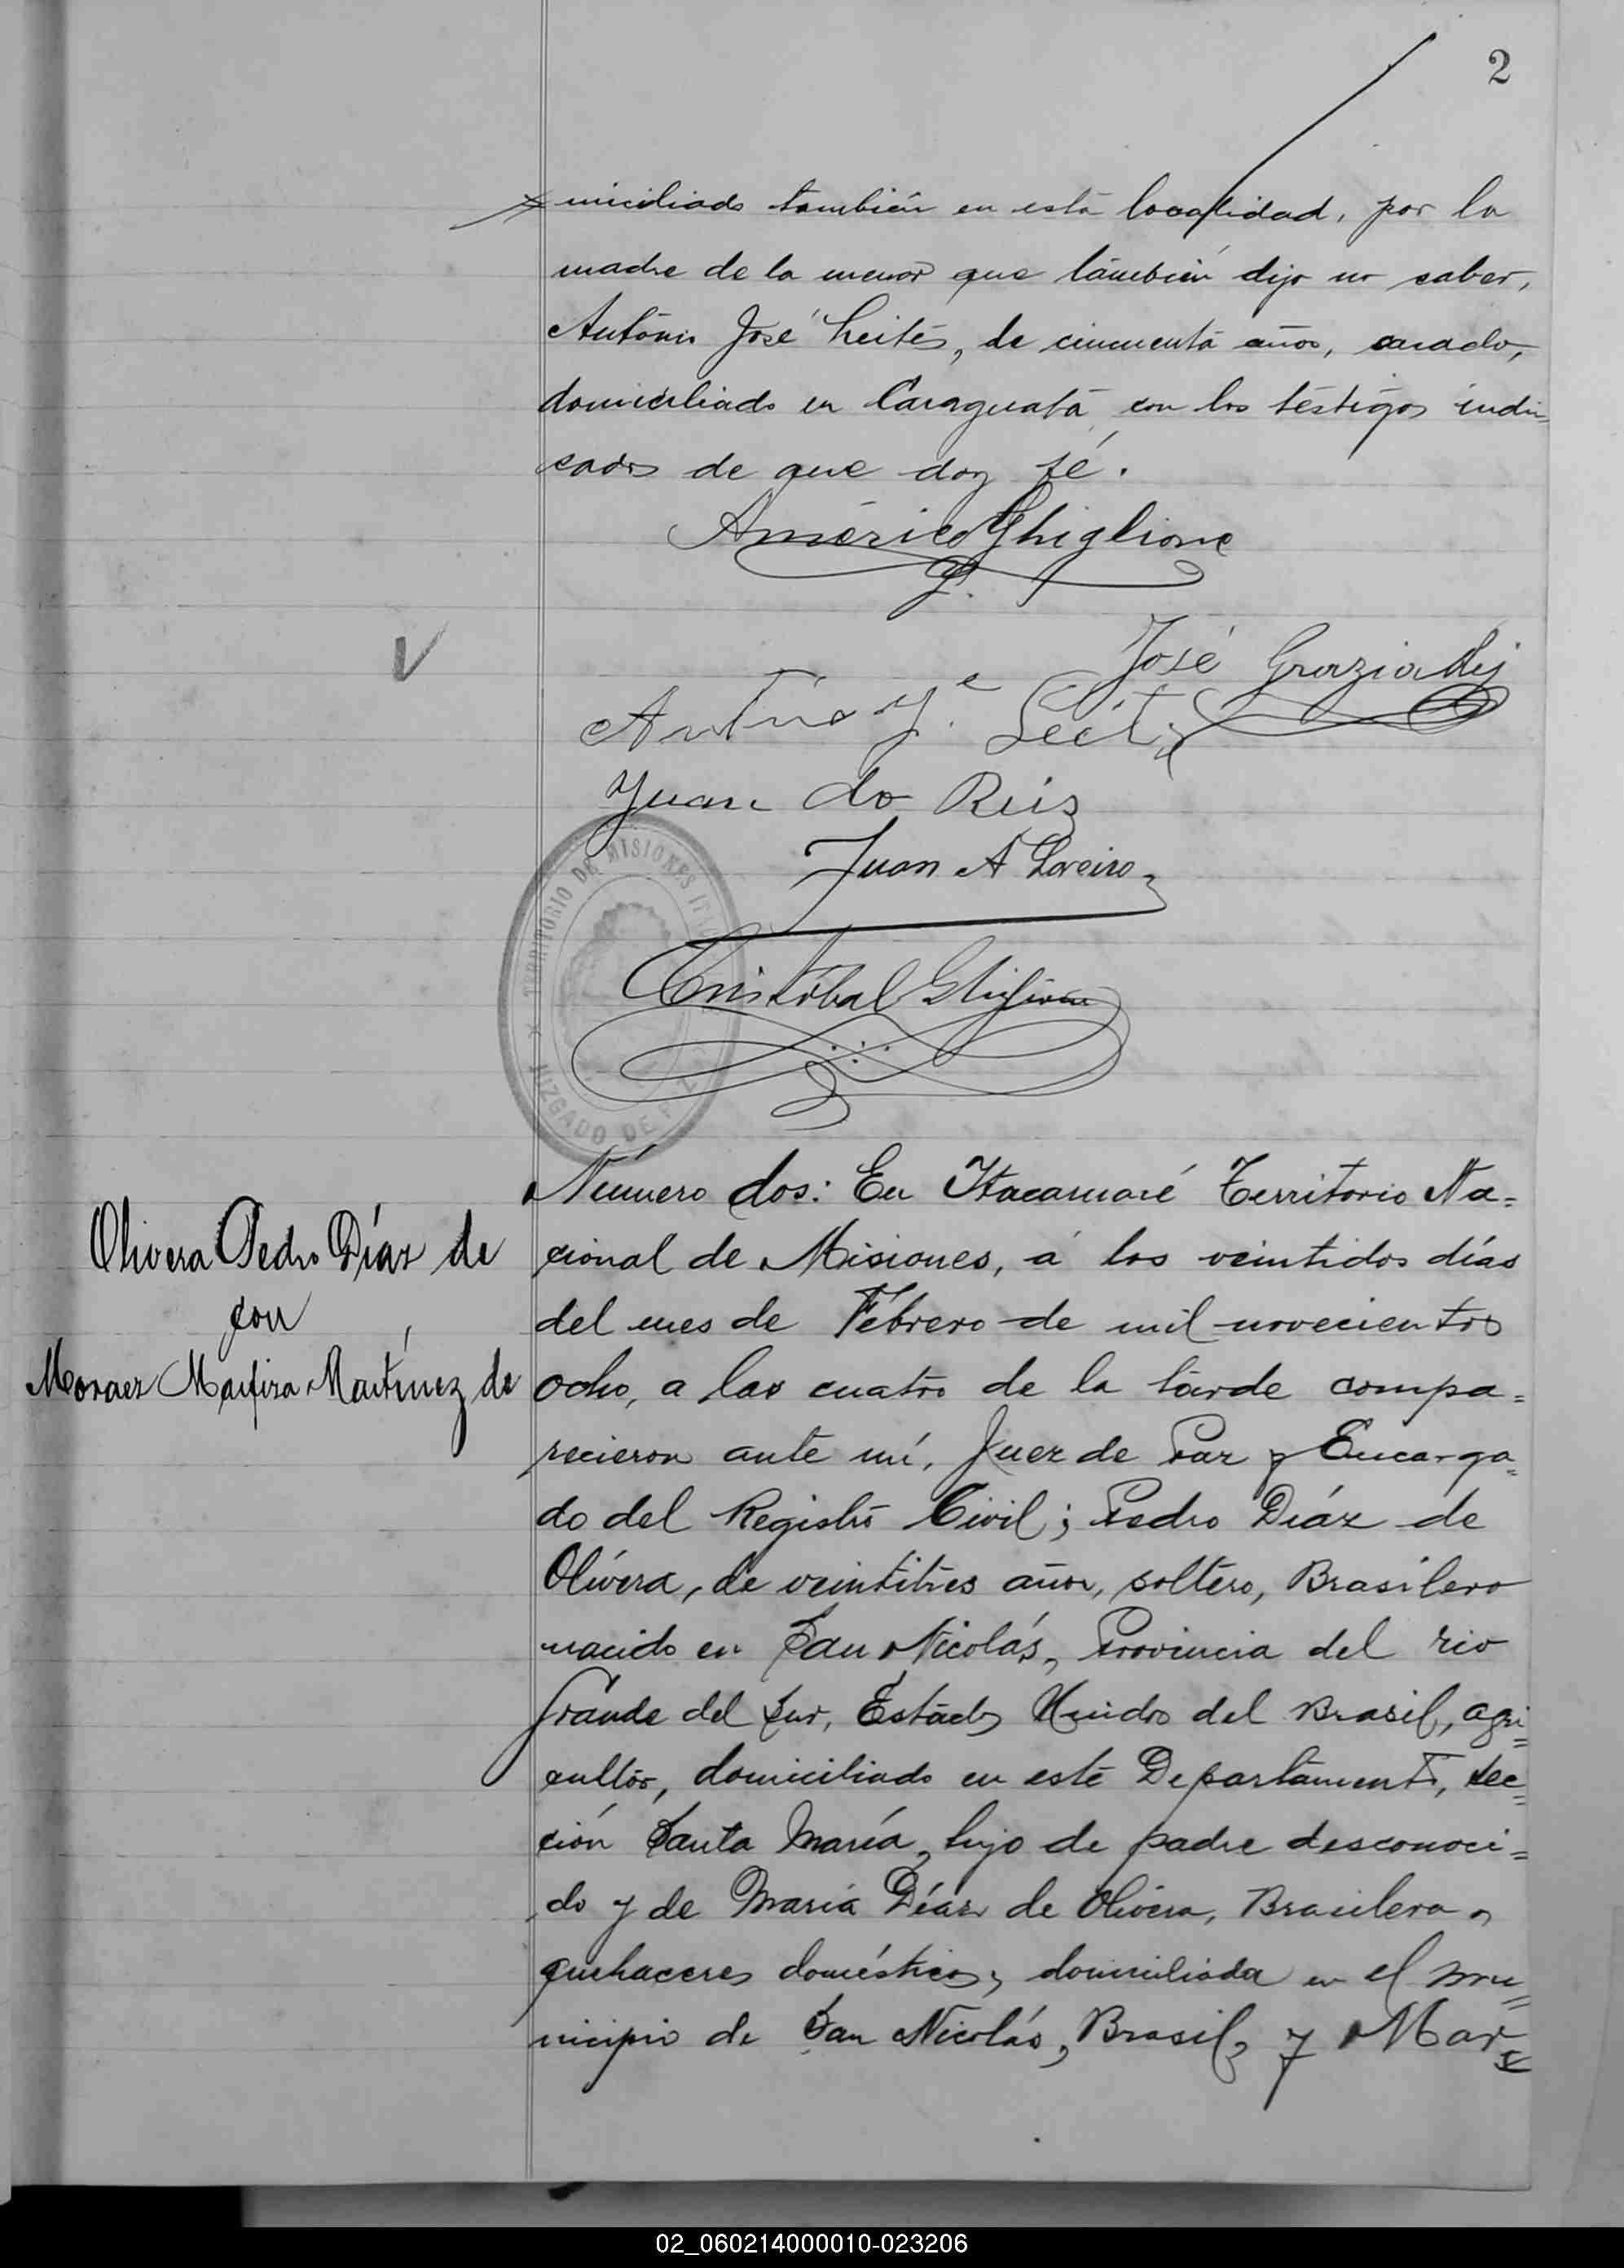 2
miciliado también en esta localidad, por la
madre de la menor que también dijo no saber,
Antonio José Leites, de cincuenta años, casado,
domiciliado en Caraguatá, con los testigos indi=
cados de que doy fé.
Américo Ghiglione
José Graziadei
José
Juan do Reis
Juan A Loreiro
TERRITORIO DE MISIONES
JUZGADO DE
Cristóbal Ghiglione
Número dos: En Itacaruaré Territorio Na=
cional de Misiones, á los veintidos días
del mes de Febrero de mil novecientos
ocho, a las cuatro de la tarde compa=
recieron ante mí, Juez de Paz y Encarga=
do del Registro Civil; Pedro Díaz de
Olivera, de veintitres años, soltero, Brasilero
nacido en San Nicolás, Provincia del rio
Grande del Sur, Estados Unidos del Brasil, agri=
cultor, domiciliado en este Departamento, Sec=
ción Santa María, hijo de padre desconoci=
do y de María Díaz de Olivera, Brasilera,
quehaceres domésticos, domiciliada en el mu=
nicipio de San Nicolás, Brasil, y Mar=
Olivera Pedro Díaz de
con
Moraez Marfiza Martínez de
02_060214000010-023206